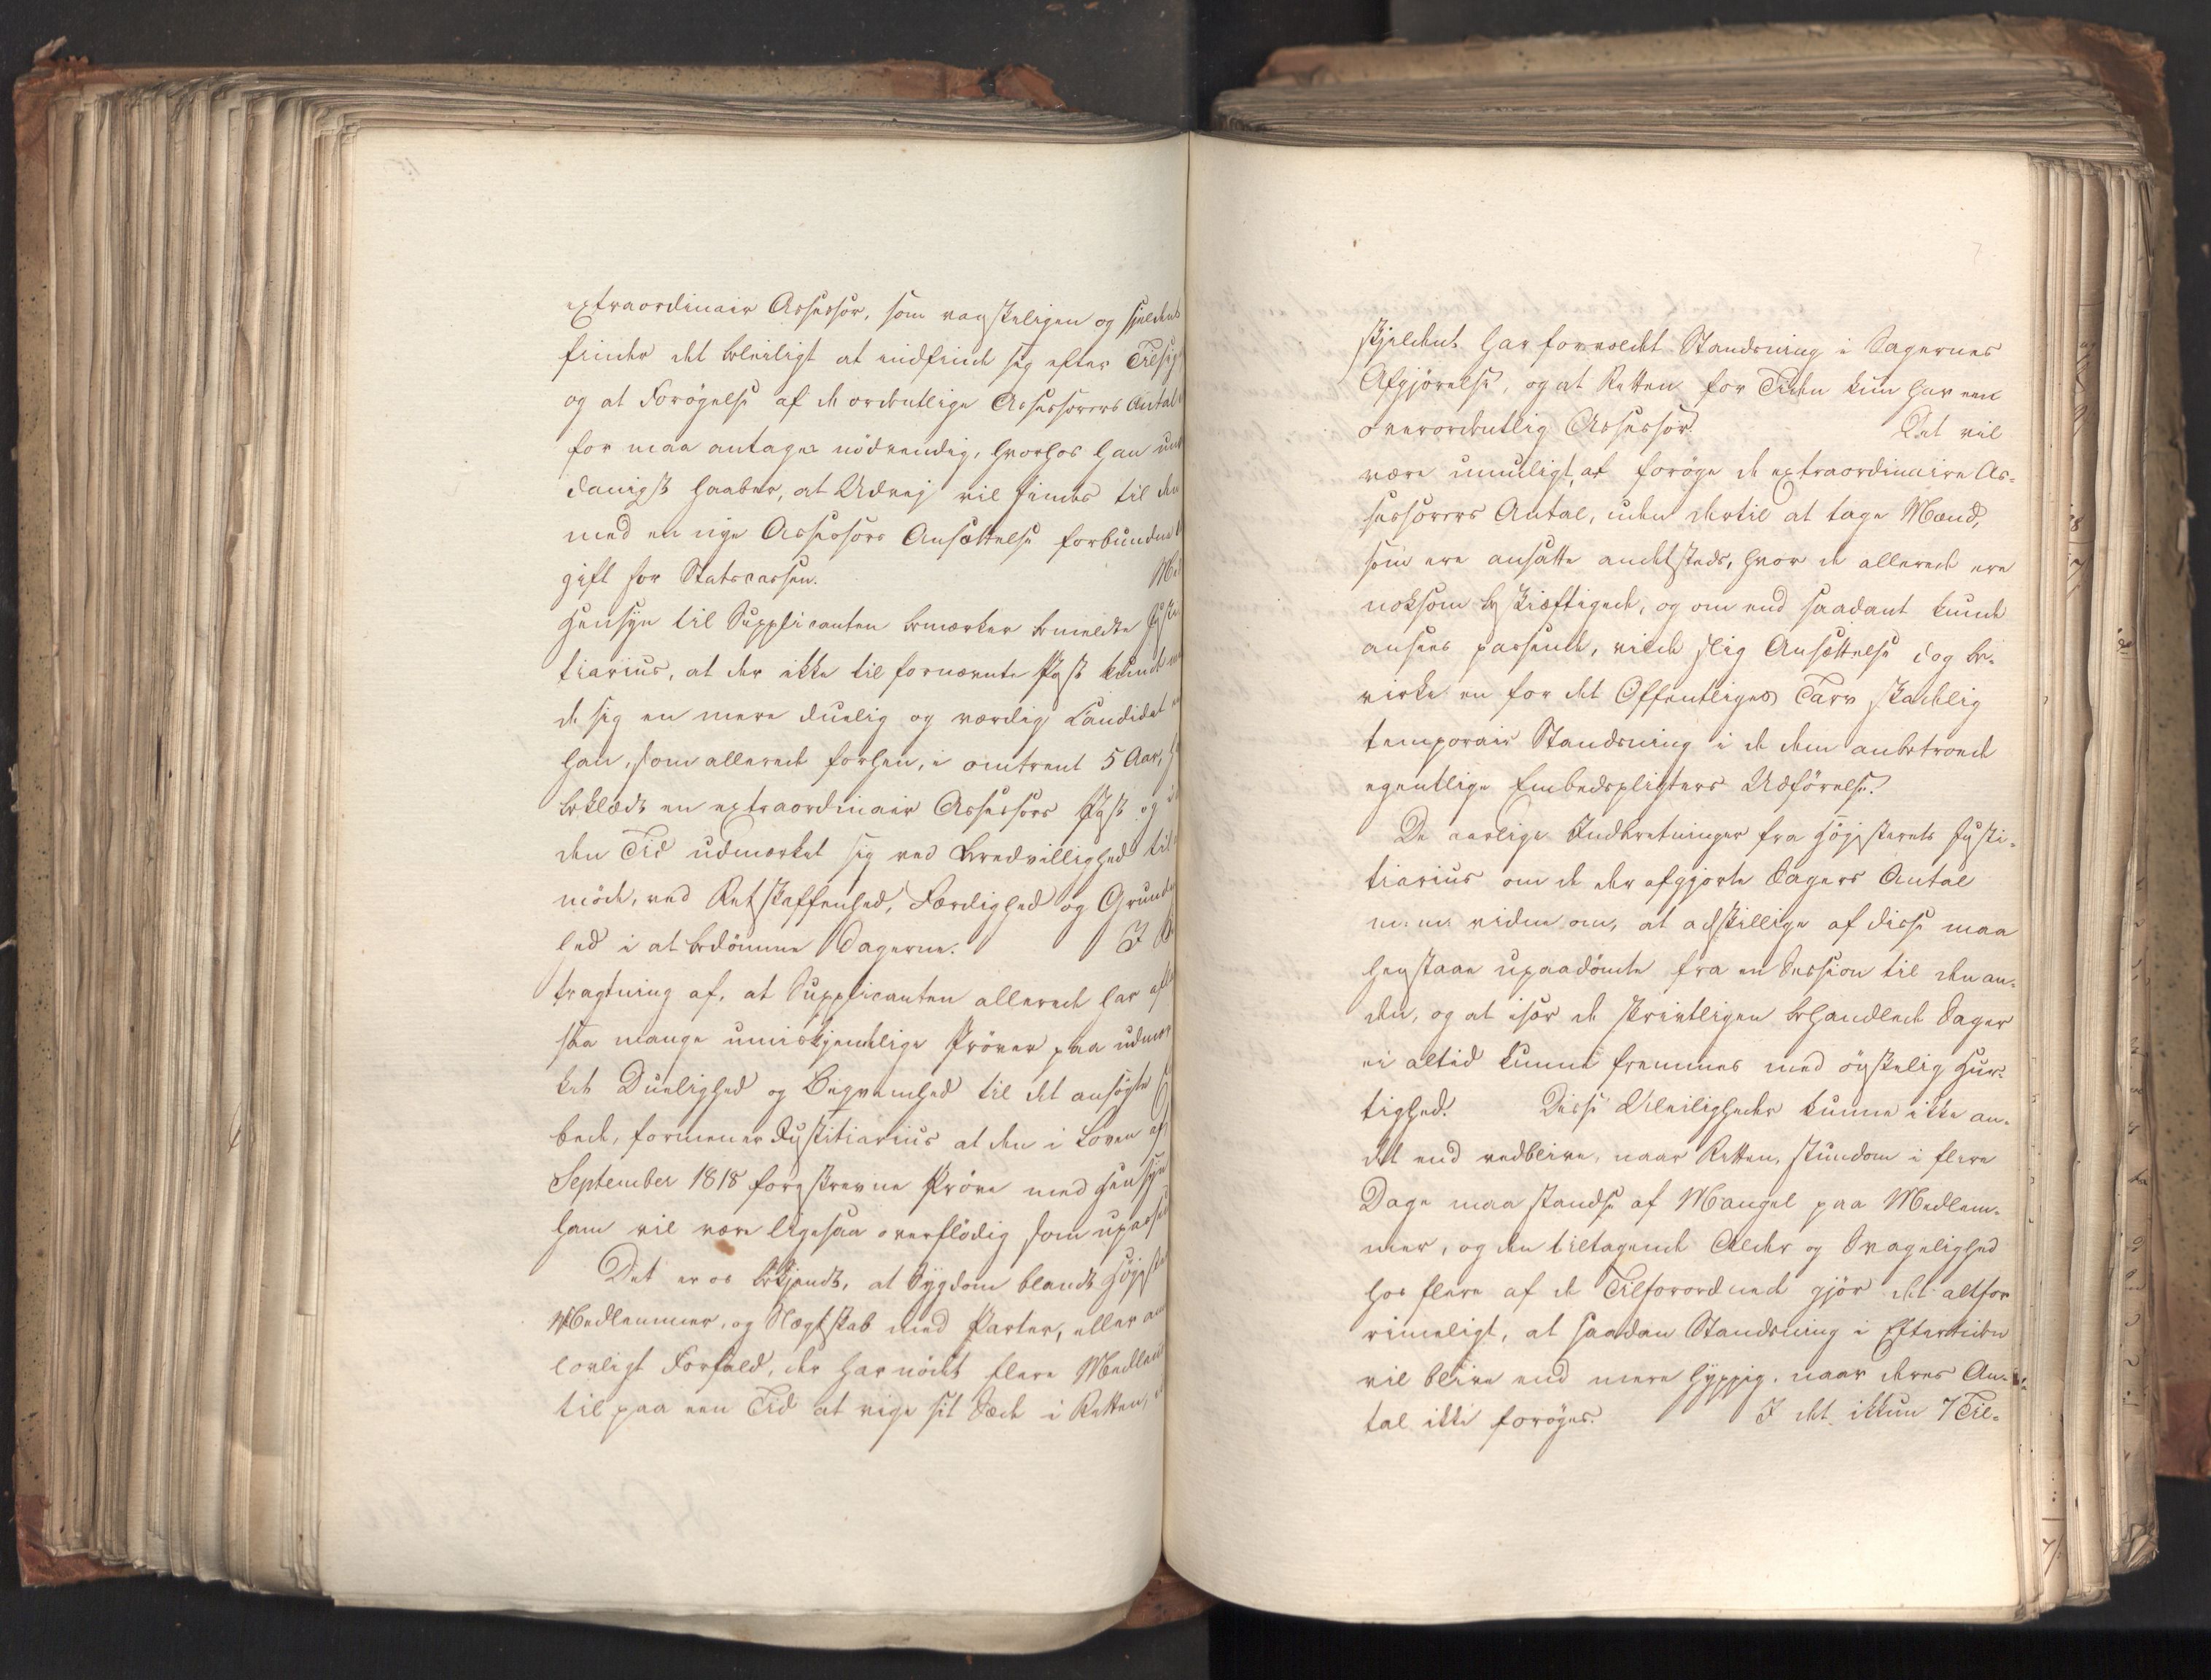 extraordinair Assessor, som vanskeligen og sjeldent
finder det beleiligt at indfinde sig efter Tilsig
og at Forøgelse af de ordentlige Assessorers Antal
for maa antages nødvendig, hvorhos han und
danigst haaber, at Udvej vil findes til den
med en nye Assessors Ansættelse forbundne
gift for Statscassen. Med
Hensyn til Supplicanten bemærker bemeldte Justi
tiarius, at der ikke til fornævnte Post kunde
de sig en mere duelig og værdig Candidat
han, som allerede forhen, i omtrent 5 Aar,
beklædt en extraordinair Assessors Post og i
den Tid udmærket sig ved Beredvillighed til
møde, ved Retskaffenhed, Færdighed og Grundig
hed i at bedømme Sagerne. I Be
tragtning af, at Supplicanten allerede har afl
saa mange umiskjendelige Prøver paa udmær
ket Duelighed og Beqvemhed til det ansøgte
bede, formener Justitiarius at den i Loven af
September 1818 foreskrevne Prøve med Hensyn
ham vil være ligesaa overflødig som upassend
Det er os bekjendt, at Sygdom blandt Højeste
Medlemmer, og Slægtskab med Parter, eller an
lovligt Forfald, der har nødt flere Medlem
til paa een Tid at vige sit Sæde i Retten,
skjeldent har forvoldet Standsning i Sagernes
Afgjørelse, og at Retten for Tiden kun har een
overordentlig Assessor. Det vil
være umuligt, at forøge de extraordinaire As-
sessorers Antal, uden dertil at tage Mænd,
som ere ansatte andetsteds, hvor de allerede ere
noksom beskiæftigede, og om end saadant kunde
ansees passende, vilde slig Ansættelse dog be-
virke en for det Offentliges Tarv skadelig
temporair Standsning i de dem anbetroede
egentlige Embedspligters Udførelse.
De aarlige Indberetninger fra Højesterets Justi-
tiarius om de der afgjorte Sagers Antal
m: m: vidne om, at adskillige af disse maa
henstaae upaadømte fra en Session til den an-
den, og at især de skrivtligen behandlede Sager
ei altid kunne fremmes med ønskelig Hur-
tighed. Disse Uleiligheder kunne ikke an-
det end vedblive, naar Retten, stundom i flere
Dage maa standse af Mangel paa Medlem-
mer, og den tiltagende Alder og Svagelighed
hos flere af de Tilforordnede gjør det altfor
rimeligt, at saadan Standsning i Eftertiden
vil blive end mere hyppig, naar deres An-
tal ikke forøges. I det ikkun 7 Til-